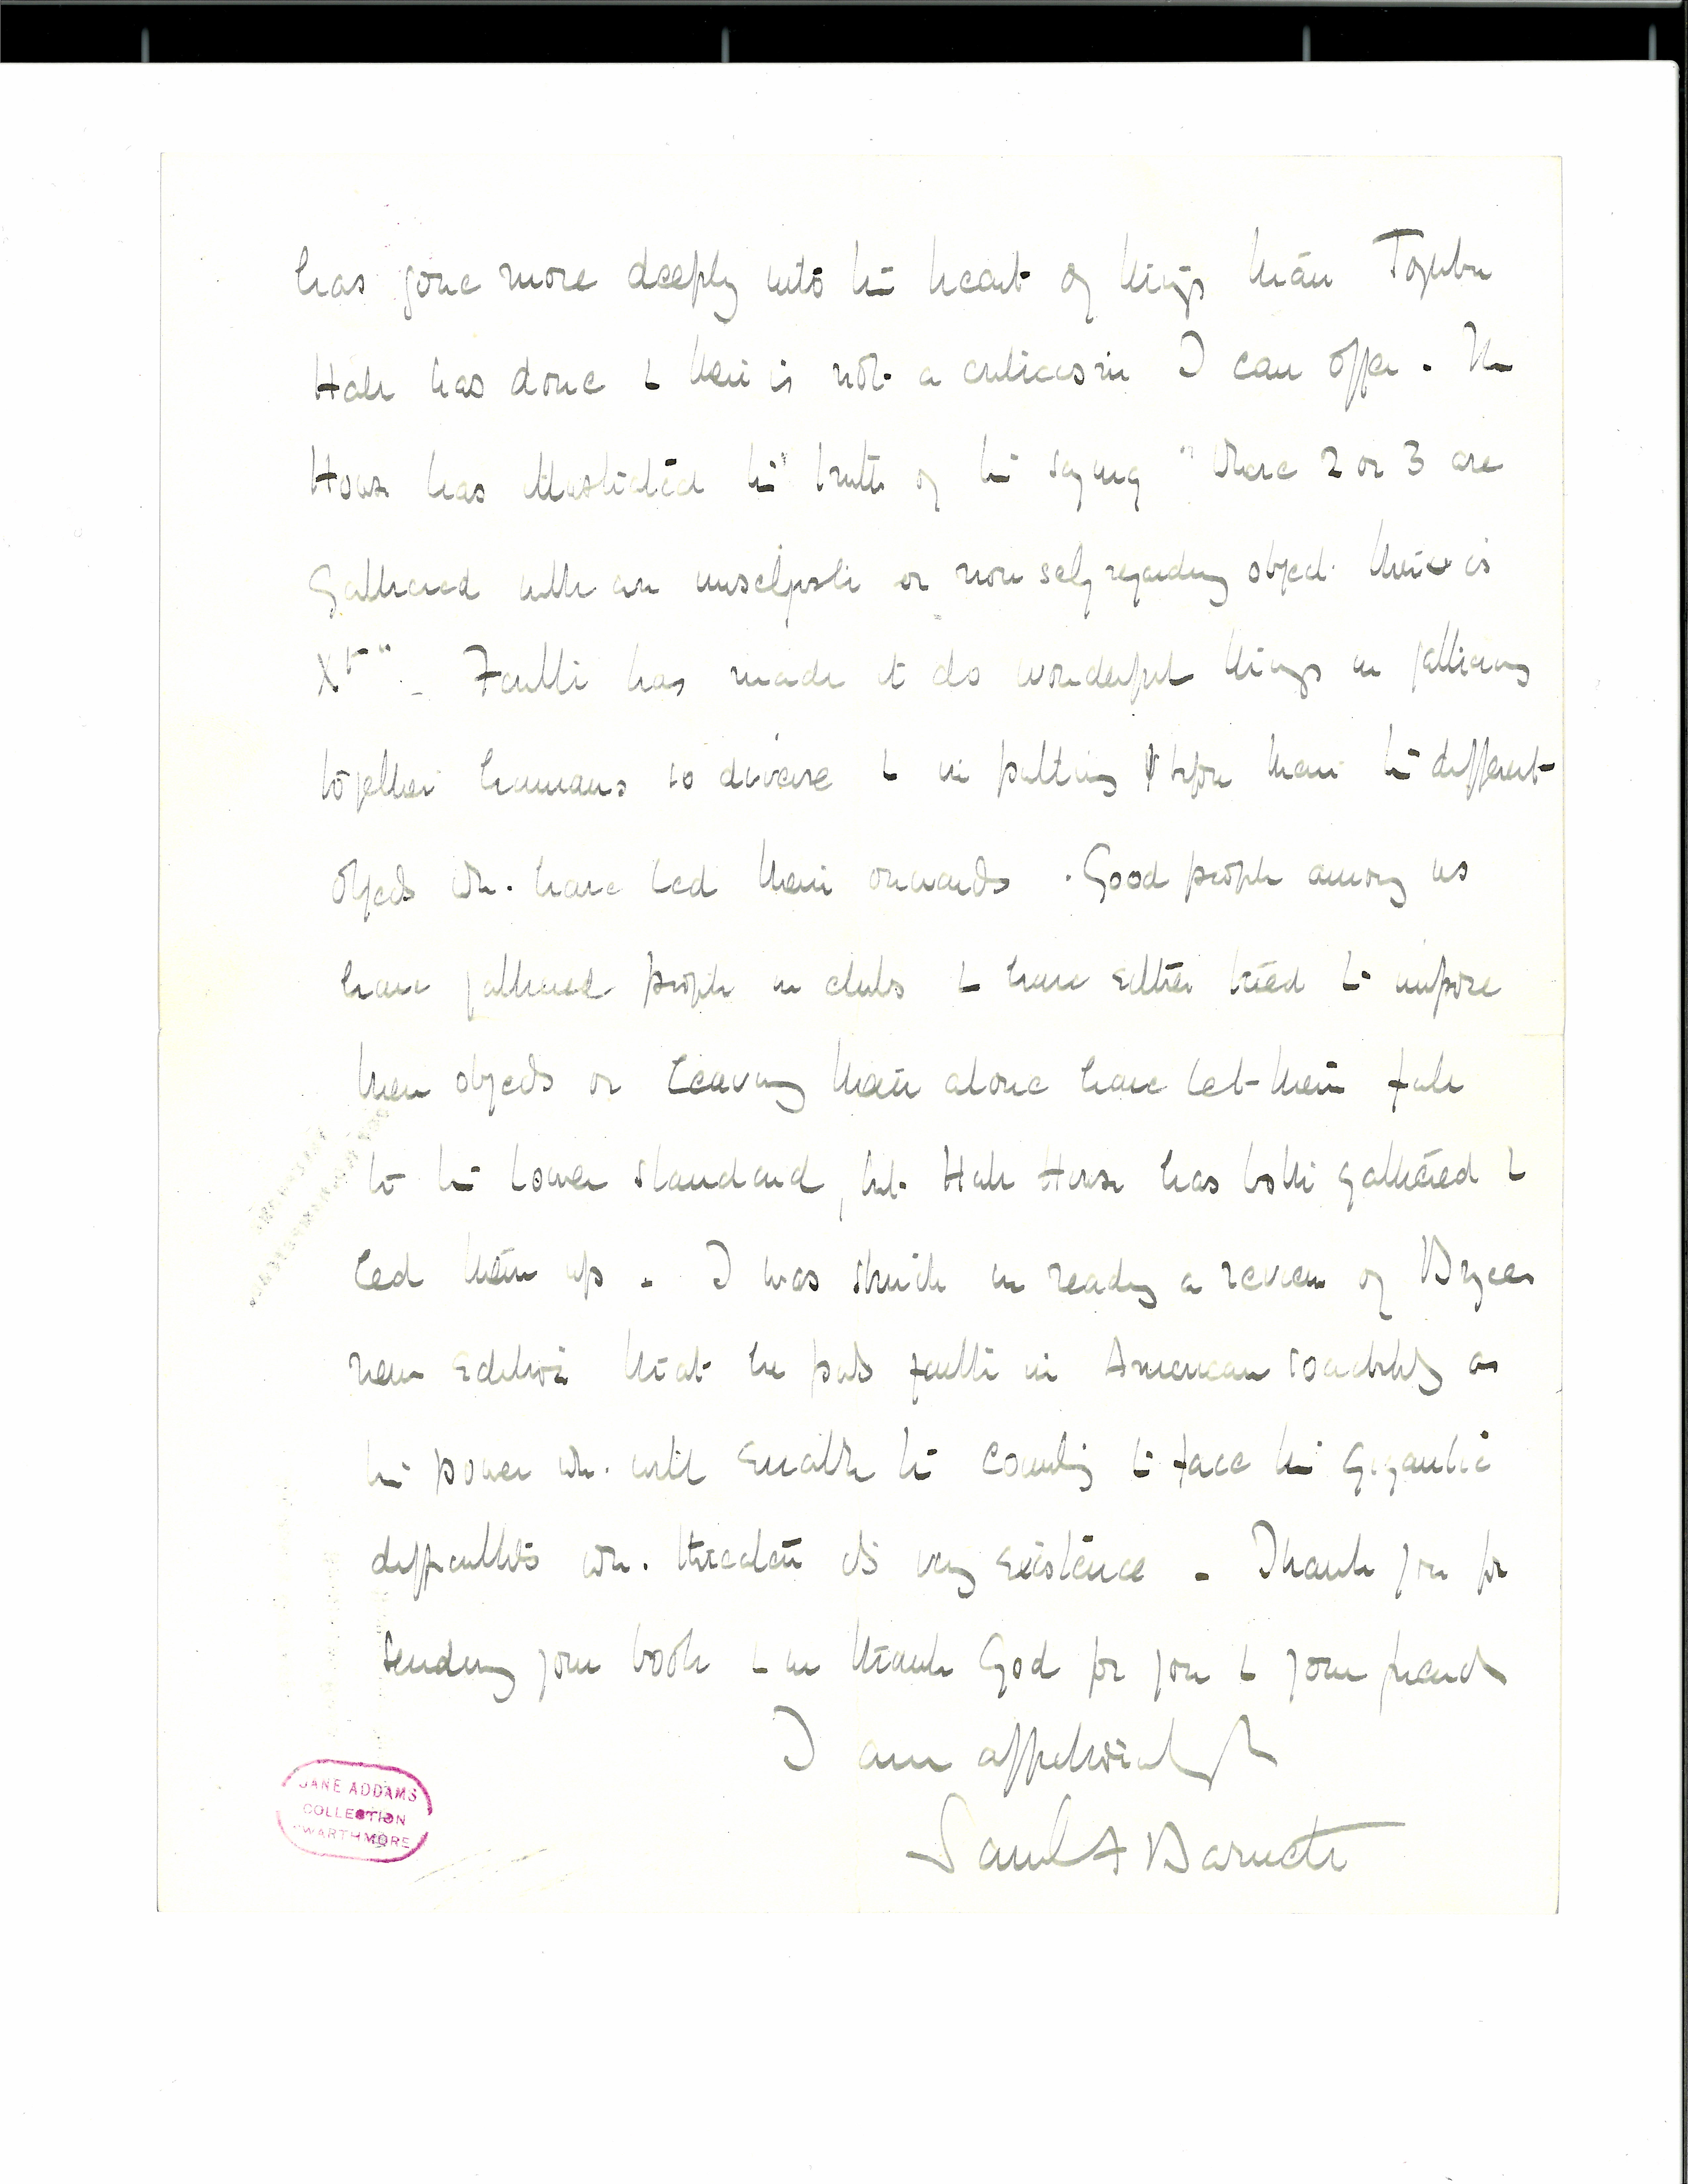 has gone more deeply into the heart of things than Toynbee
Hall has done & there is not a criticism I can offer. The
House has illustrated the truth of the saying "Where 2 or 3 are
gathered with an unselfish or non self regarding object there is
Xt". Faith has made it do wonderful things in gathering
together humans so diverse & in putting before them the different
objects wh. have led them onwards. Good people among us
have gathered people in clubs & have either tried to impose
their objects or leaving them alone have let them fall
to the lower standard, but Hull House has both gathered &
led them up. I was struck in reading a review of Bryces
new edition that he puts faith in American sociability as
the power wh. will enable the country to face the gigantic
difficulties wh. threaten its very existence. Thank you for
sending your book & we thank God for you & your friends
I am affectionately
Saml A Barnett
JANE ADDAMS
COLLECTION
SWARTHMORE